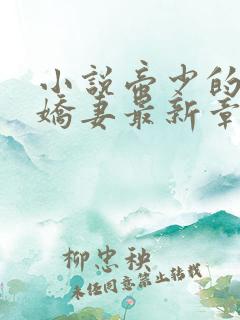 小説少的
嬌妻最新章
柳忠秧
未经同意禁止转载